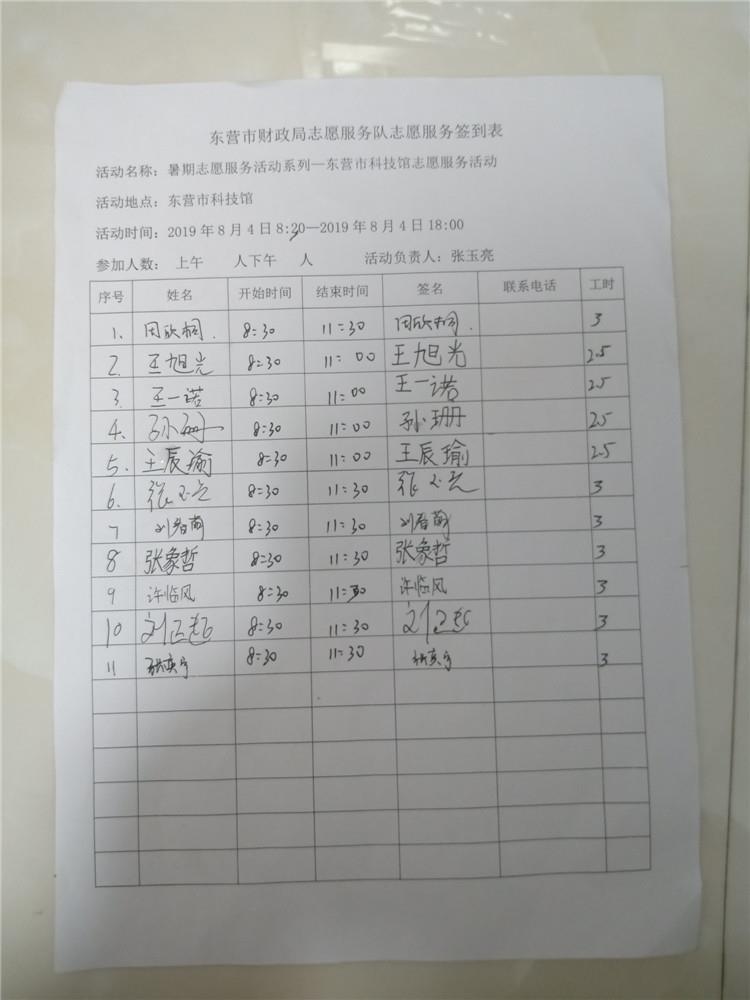 东营市财政局志愿服务队志愿服务签到表
活动名称：暑期志愿服务活动系列—东营市科技馆志愿服务活动
活动地点：东营市科技馆
活动时间：2019年8月4日8:30—2019年8月4日18:00
参加人数： 上午 人下午 人 活动负责人：张玉亮
序号 姓名 开始时间 结束时间 签名 联系电话 工时
1. 田欣桐. 8:30 11:30 田欣桐. 3
2. 王旭光 8:30 11:00 王旭光 2.5
3. 王一诺 8:30 11:00 王一诺 2.5
4. 孙珊 8:30 11:00 孙珊 2.5
5. 王辰瑜 8:30 11:00 王辰瑜 2.5
6. 张玉亮 8:30 11:30 张玉亮 3
7 8:30 11:30 3
8 张象哲 8:30 11:30 张象哲 3
9 许临风 8:30 11:30 许临风 3
10 8:30 11:30 3
11 8:30 11:30 3